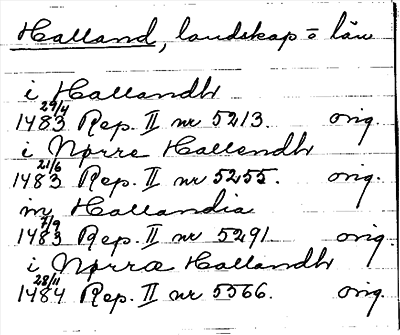 Halland, landskap o län
i Hallandh
29/4
1483 Rep. II nr 5213. orig.
i Nørre Hallendh
21/6
1483 Rep. II nr 5255. orig.
in Hallandia
7/9
1483 Rep. II nr 5291 orig.
i Nørra Hallandh
28/11
1484 Rep. II nr 5566. orig.